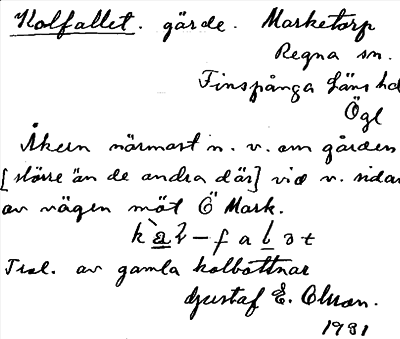 Kolfallet. gärde. Marketorp
Regna sn.
Finspånga läns hd
Ögl
Åkern närmast n. v. om gården
[större än de andra där] vid v. sidan
av vägen mot Ö Mark.
av gamla kolbottnar
Gustaf E. Olsson.
1931